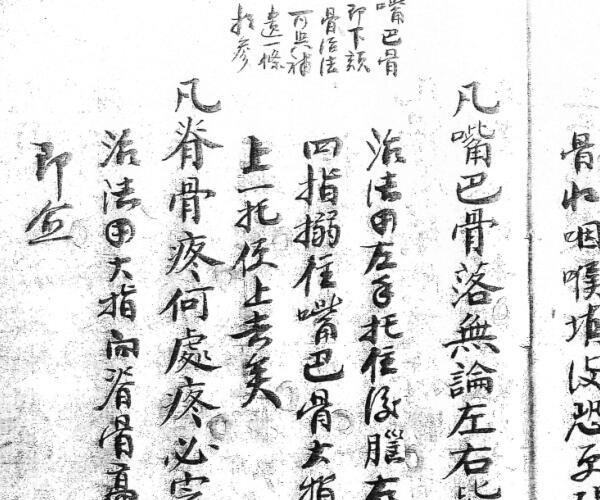 骨收咽喉填没恐
嘴巴骨
即下頦
骨治法
可與補
遺一條
相參
凡嘴巴骨落無論左右皆
治法用左手托住後腦右
四指搦住嘴巴骨大指
上一托使上去矣
凡脊骨疼何處疼必
治法用大指向脊骨高
即愈